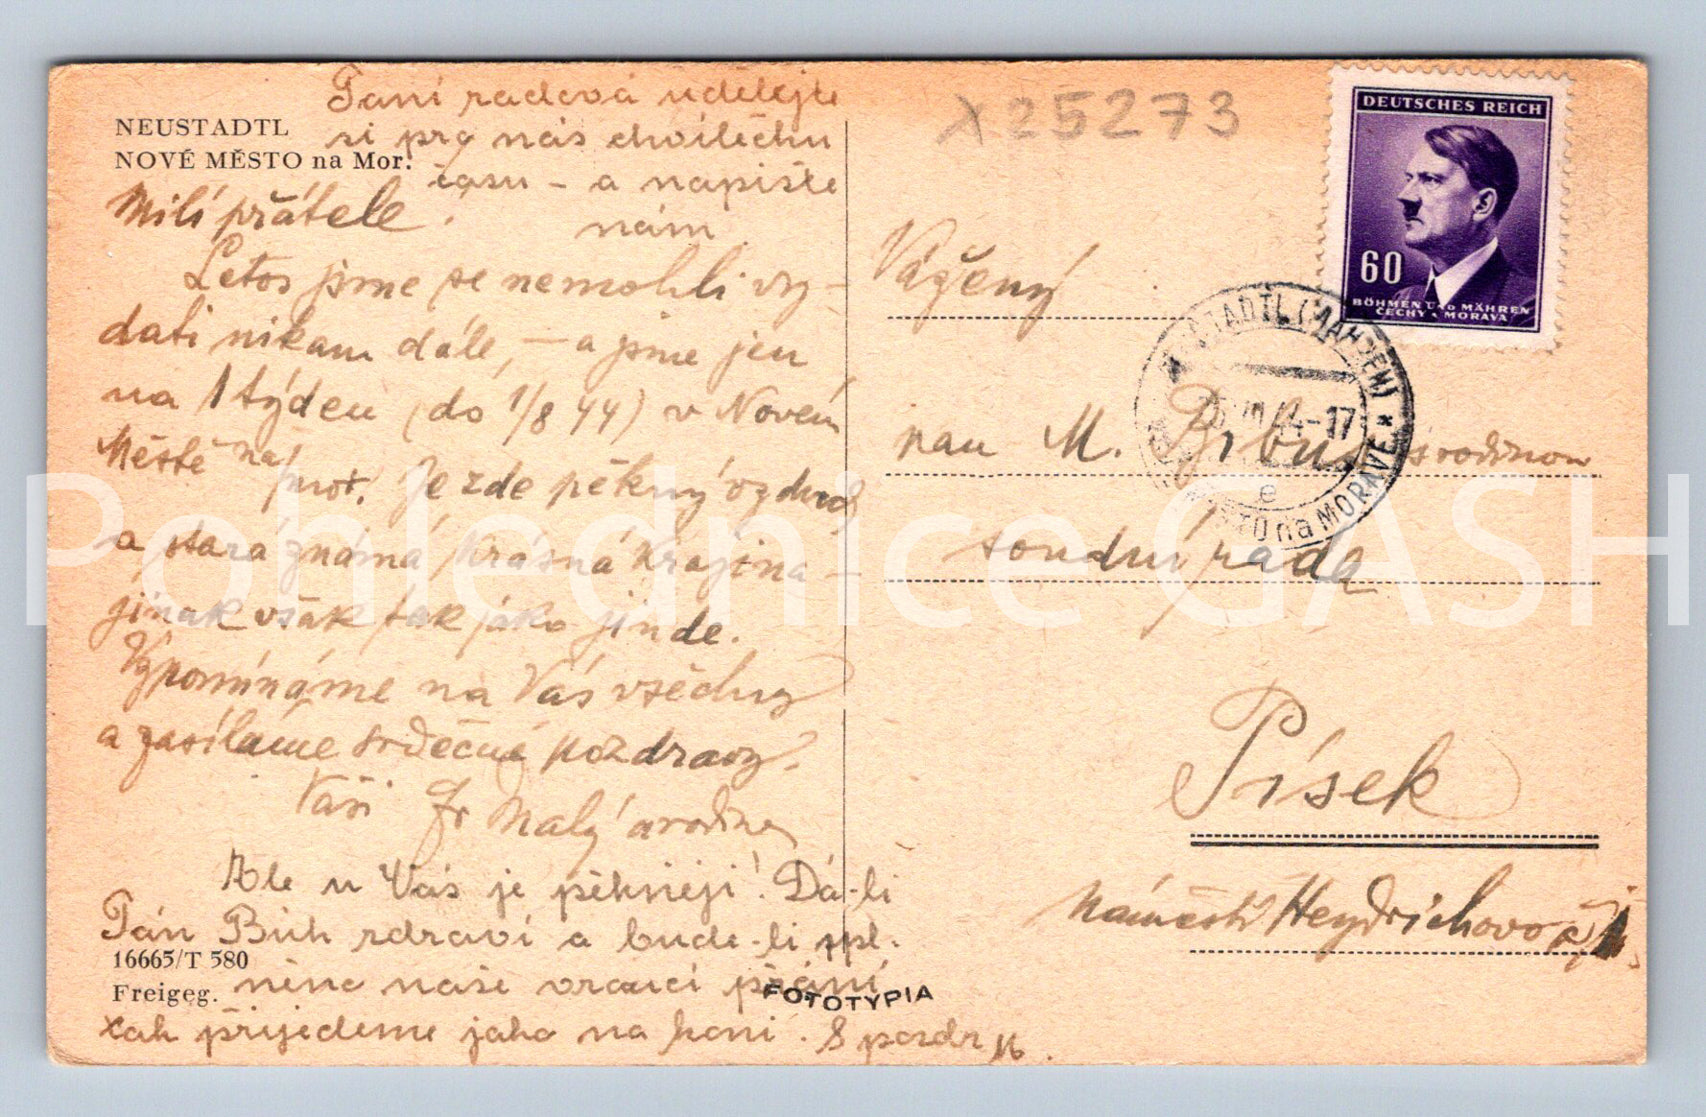 NEUSTADTL
NOVÉ MĚSTO na Mor.
Paní radová udělejte
si pro nás chvilečku
času - a napište
nám.
Milí přátele!
Letos jsme se nemohli vy-
dati nikam dále, - a jsme jen
na 1 týden (do 1/8 44) v Novém
Městě na Mor. Je zde pěkný vzduch
a stará známá krásná krajina -
jinak však tak jako jinde.
Vzpomínáme na Vás všechny
a zasíláme srdečné pozdravy.
Vaši Fr Malý a rodina
Ale u Vás je pěkněji! Dá-li
Pán Bůh zdraví a bude-li spl-
něno naše vroucí přání,
tak přijedeme jako na koni. S pozdr M.
16665/T 580
Freigeg.
FOTOTYPIA
X 25273
DEUTSCHES REICH
60
BÖHMEN UND MÄHREN
ČECHY A MORAVA
STADTL (MÄHREN)
44-17
e
MĚSTO na MORAVĚ
Vážený
pan M. s rodinou
soudní rada
Písek
Náměstí Heydrichovo
Pohlednice GASH